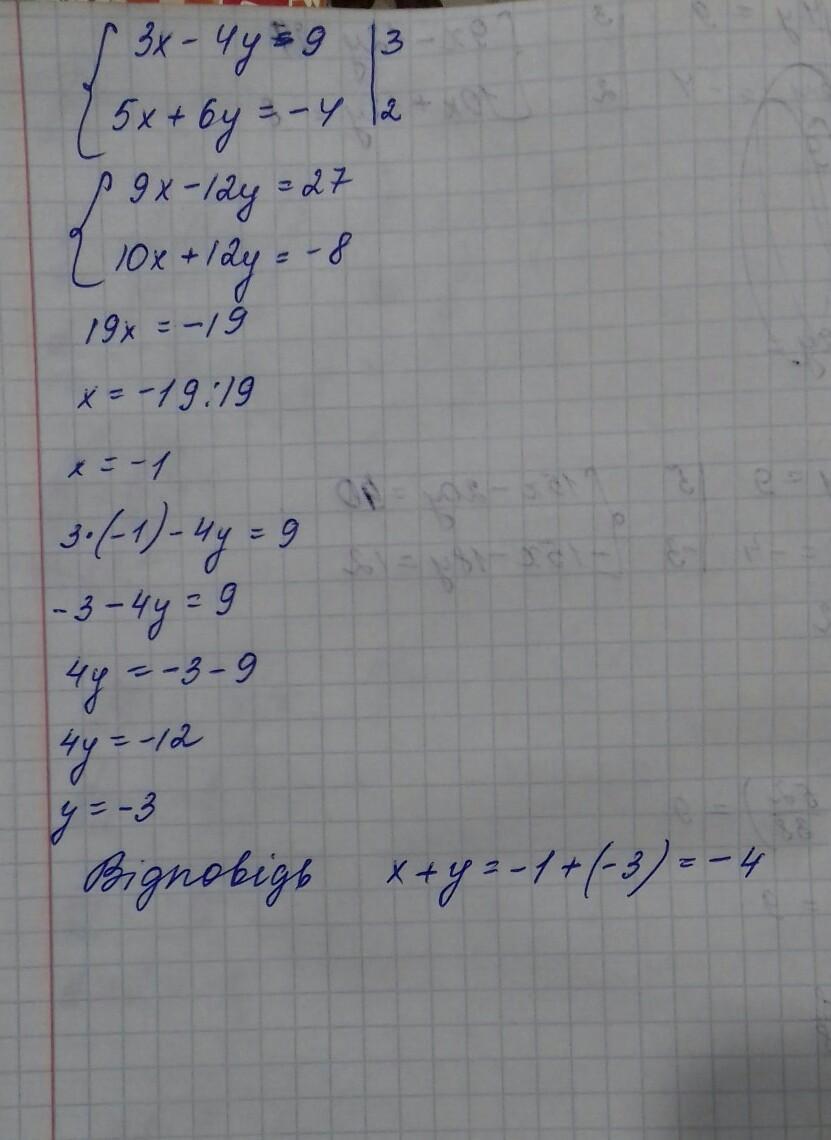 3x - 4y = 9 | 3
5x + 6y = -4 | 2
9x - 12y = 27
10x + 12y = -8
19x = -19
x = -19:19
x = -1
3·(-1) - 4y = 9
-3 - 4y = 9
4y = -3 - 9
4y = -12
y = -3
Відповідь x + y = -1 + (-3) = -4